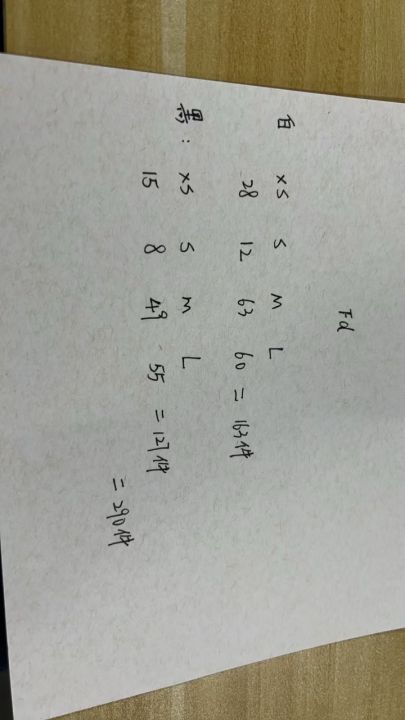 Fd
白 XS S M L
28 12 63 60 = 163件
黑: XS S M L
15 8 49 55 = 127件
= 290件